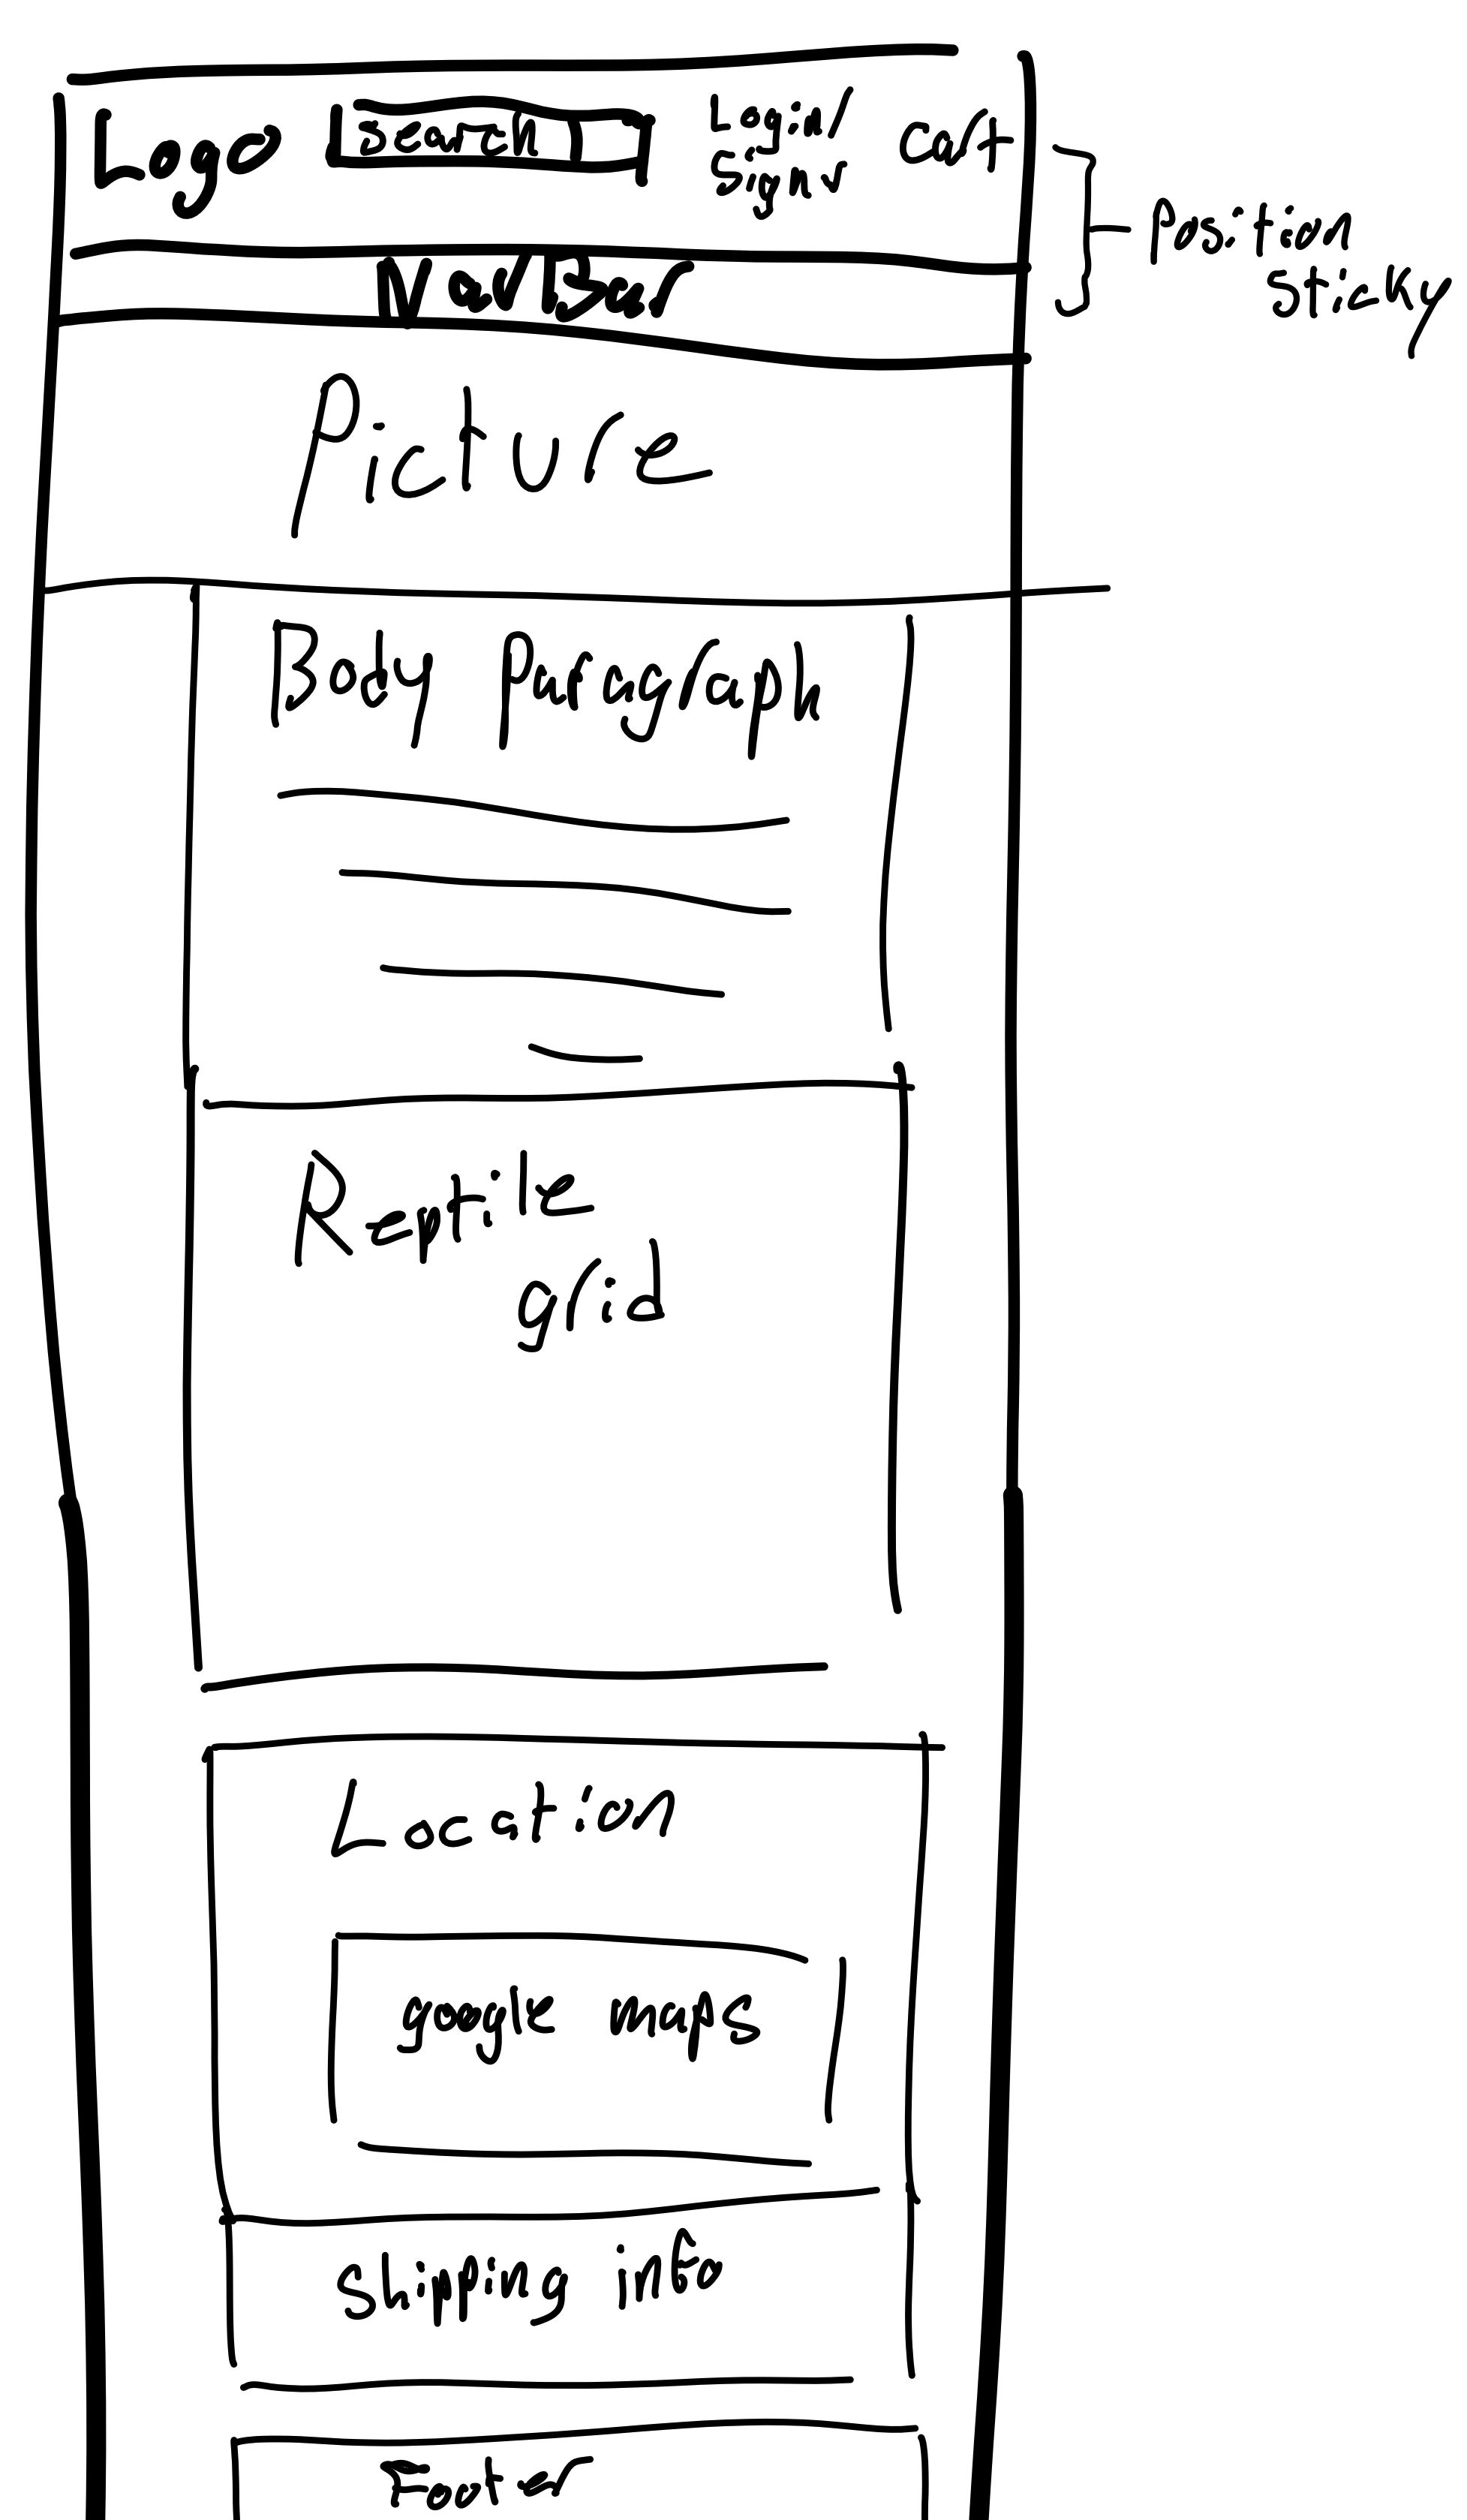 Logo
Search
Login/
signin
cart
Position
sticky
Navbar
Picture
Body paragraph
Reptile
grid
Location
google maps
shipping info
Footer